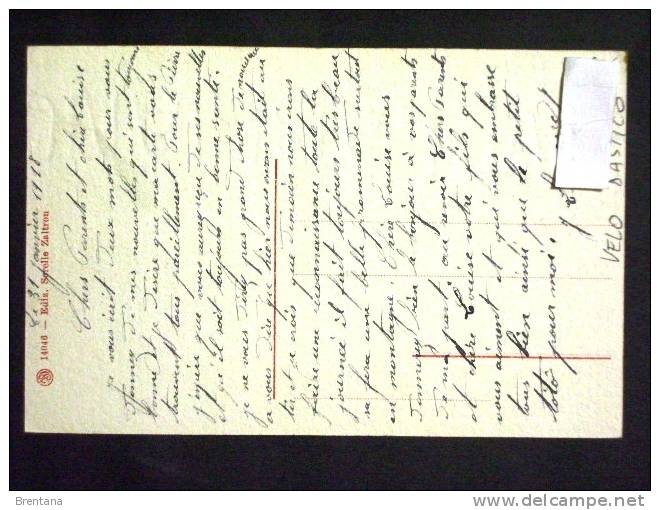 Le 31 Janvier 1918
Chers Parents et chère Louise
je vous écrit deux mots pour vous
donnez de mes nouvelles qui sont toujours
bonne et je désire que ma carte vous
trouvent tous pareillement Pour le Père
j'espère que vous aurez reçu de ses nouvelles
et qu'il soit toujours en bonne santé.
je ne vous dis pas grand chose
a vous dire que hier nous avons
et je crois que demain nous irons
faire une reconnaissance toute la
journée il fait toujours très beau
sa fera une belle promenade surtout
en montagne. Chère Louise vous
donnerez bien le bonjour à vos parents
de ma part au revoir Chers parents
et chère Louise votre fils qui
vous aiment et qui vous embrasse
tous bien ainsi que le petit
totò pour moi.
14046 — Ediz. Scrolle Zaltron
VELO D'ASTICO
Brentana
delcampe.net